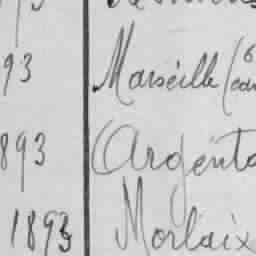 93 Marseille (6
893 (Argenta
1893 Morlaix